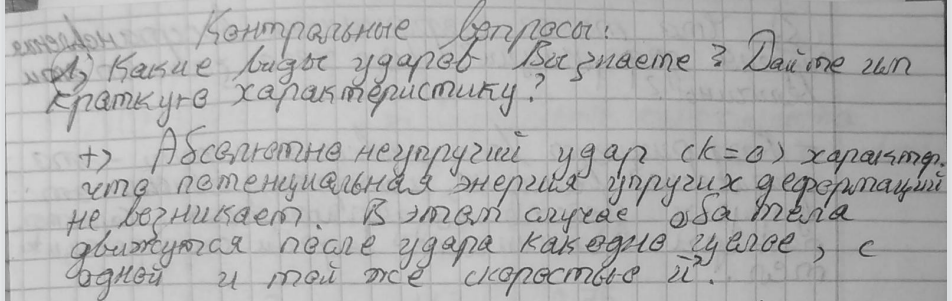 Контрольные вопросы:
1) Какие виды ударов Вы знаете? Дайте им
краткую характеристику?
+) Абсолютно неупругий удар (k=0) характер.
что потенциальная энергия упругих деформаций
не возникает. В этом случае оба тела
движутся после удара как одно целое, с
одной и той же скоростью u⃗.